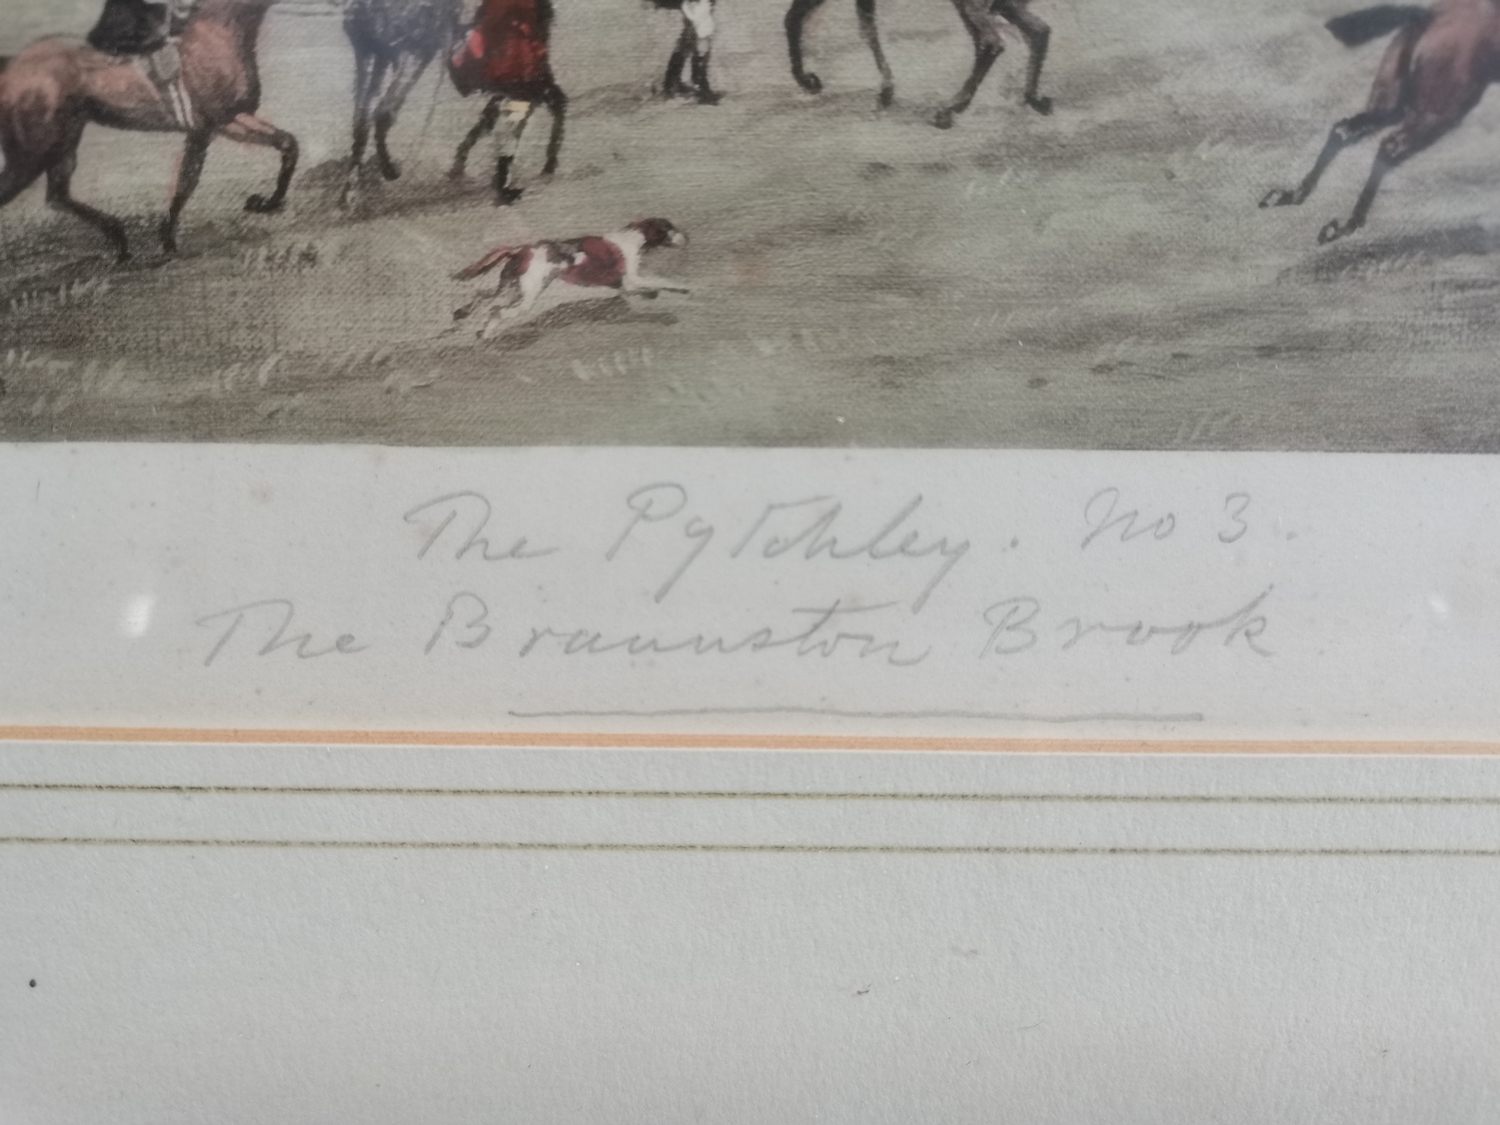 The Pytchley. No 3.
The Braunston Brook